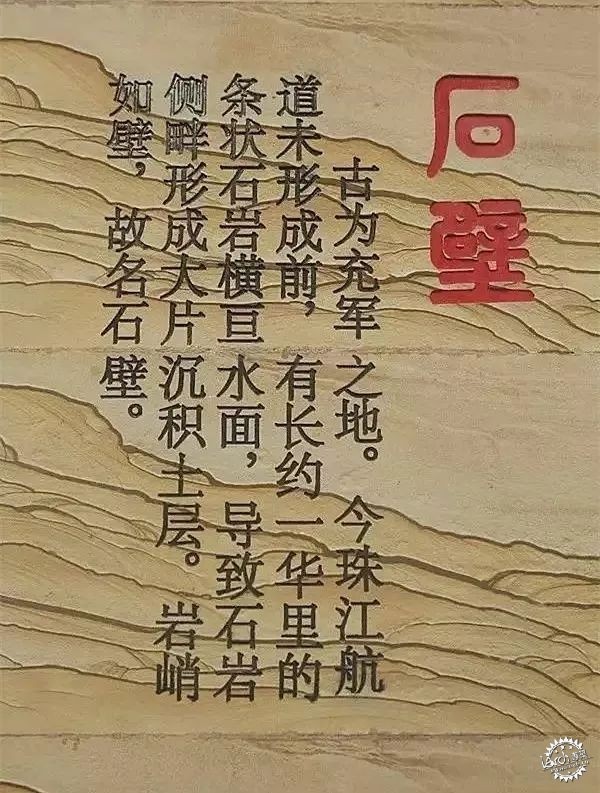 石壁
古为充军之地。今珠江航
道未形成前，有长约一华里的
条状石岩横亘水面，导致石岩
侧畔形成大片沉积土层。岩峭
如壁，故名石壁。